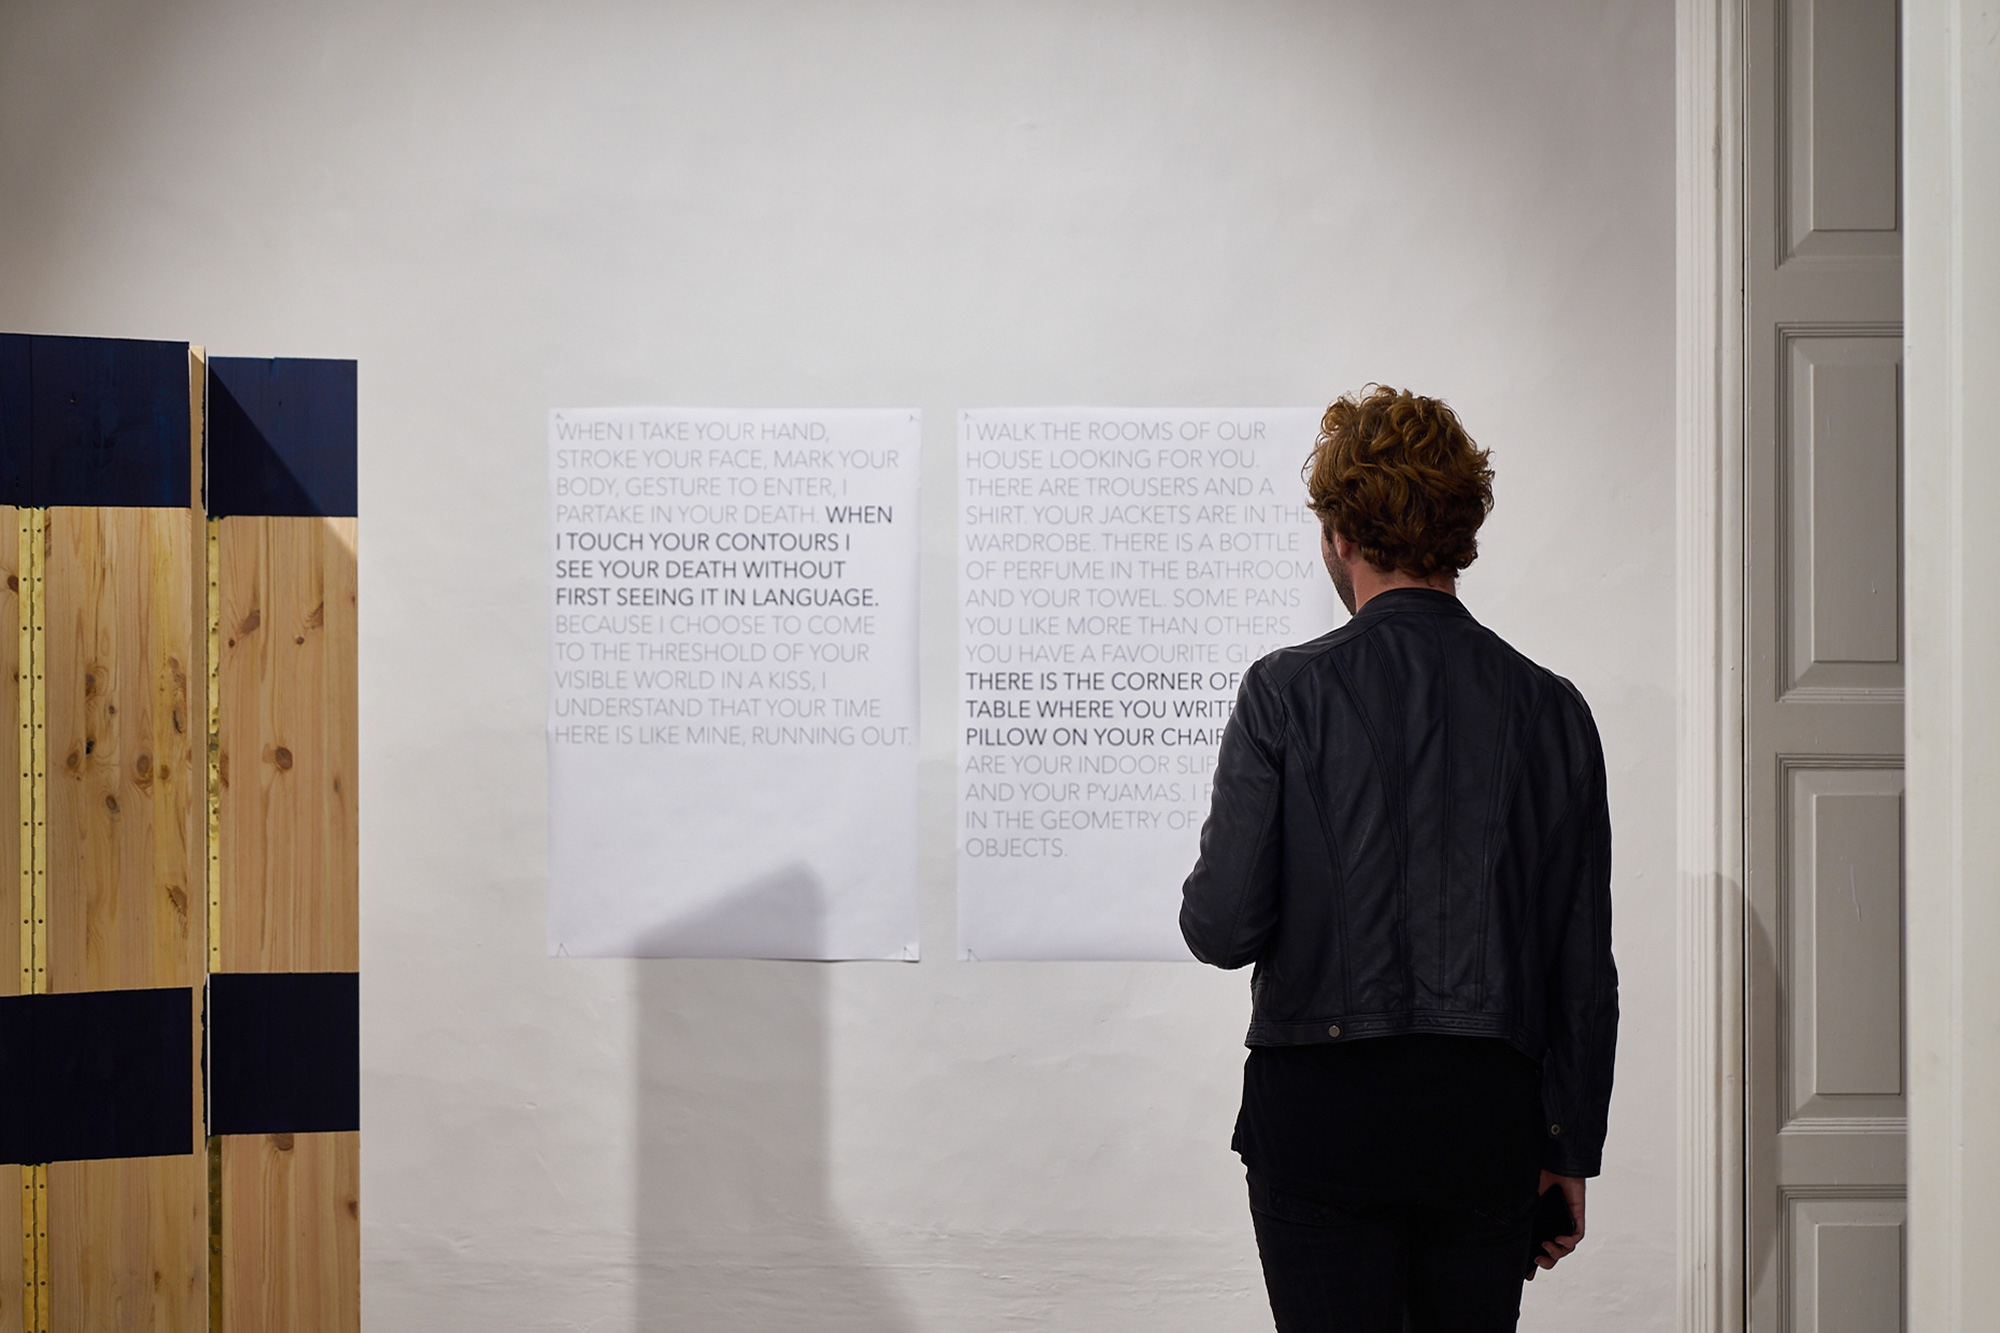 WHEN I TAKE YOUR HAND,
STROKE YOUR FACE, MARK YOUR
BODY, GESTURE TO ENTER, I
PARTAKE IN YOUR DEATH. WHEN
I TOUCH YOUR CONTOURS I
SEE YOUR DEATH WITHOUT
FIRST SEEING IT IN LANGUAGE.
BECAUSE I CHOOSE TO COME
TO THE THRESHOLD OF YOUR
VISIBLE WORLD IN A KISS, I
UNDERSTAND THAT YOUR TIME
HERE IS LIKE MINE, RUNNING OUT.
I WALK THE ROOMS OF OUR
HOUSE LOOKING FOR YOU.
THERE ARE TROUSERS AND A
SHIRT. YOUR JACKETS ARE IN THE
WARDROBE. THERE IS A BOTTLE
OF PERFUME IN THE BATHROOM
AND YOUR TOWEL. SOME PANS
YOU LIKE MORE THAN OTHERS.
YOU HAVE A FAVOURITE
THERE IS THE CORNER OF
TABLE WHERE YOU WRITE
PILLOW ON YOUR CHAIR
ARE YOUR INDOOR
AND YOUR PYJAMAS. I
IN THE GEOMETRY OF
OBJECTS.